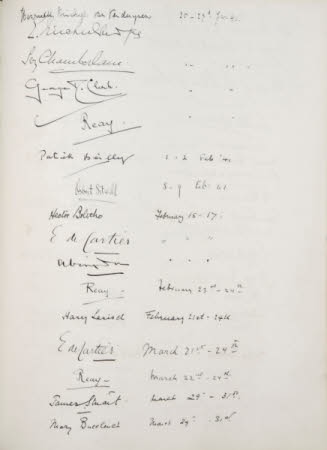 Marguerite
Ivy Chamberlain " " "
George T. Clark " "
Reay " "
Patrick 1 - 2 Feb '41
8 - 9 Feb: 41
Hector Bolitho February 15 - 17.
E de Cartier " " "
Abingdon " " "
Reay February 22nd - 24th
Harry February 21st - 24th
E de Cartier March 21st - 24th
Reay March 22nd - 24th
James Stuart March 29th - 31st
Mary Buccleuch March 29th - 31st